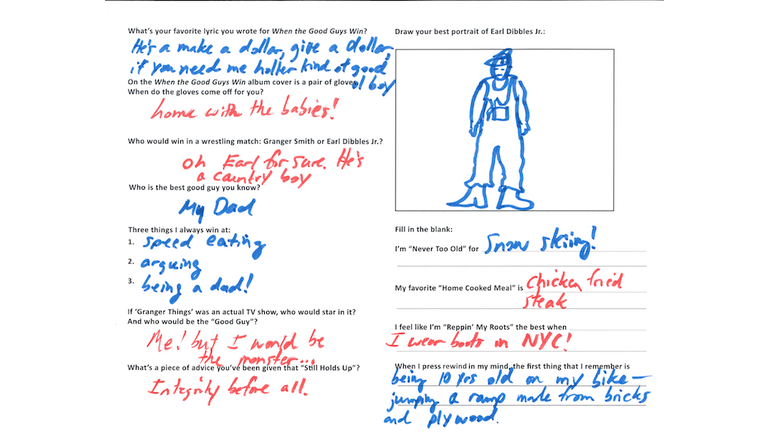 What's your favorite lyric you wrote for When the Good Guys Win?
He's a make a dollar, give a dollar,
if you need me holler kind of good
ol boy
On the When the Good Guys Win album cover is a pair of gloves.
When do the gloves come off for you?
home with the babies!
Who would win in a wrestling match: Granger Smith or Earl Dibbles Jr.?
oh Earl for sure. He's
a country boy
Who is the best good guy you know?
My Dad
Three things I always win at:
1. speed eating
2. arguing
3. being a dad!
If 'Granger Things' was an actual TV show, who would star in it?
And who would be the "Good Guy"?
Me! but I would be
the monster...
What's a piece of advice you've been given that "Still Holds Up"?
Integrity before all.
Draw your best portrait of Earl Dibbles Jr.:
Fill in the blank:
I'm "Never Too Old" for snow skiing!
My favorite "Home Cooked Meal" is chicken fried
steak
I feel like I'm "Reppin' My Roots" the best when
I wear boots in NYC!
When I press rewind in my mind, the first thing that I remember is
being 10 yrs old on my bike—
jumping a ramp made from bricks
and plywood.